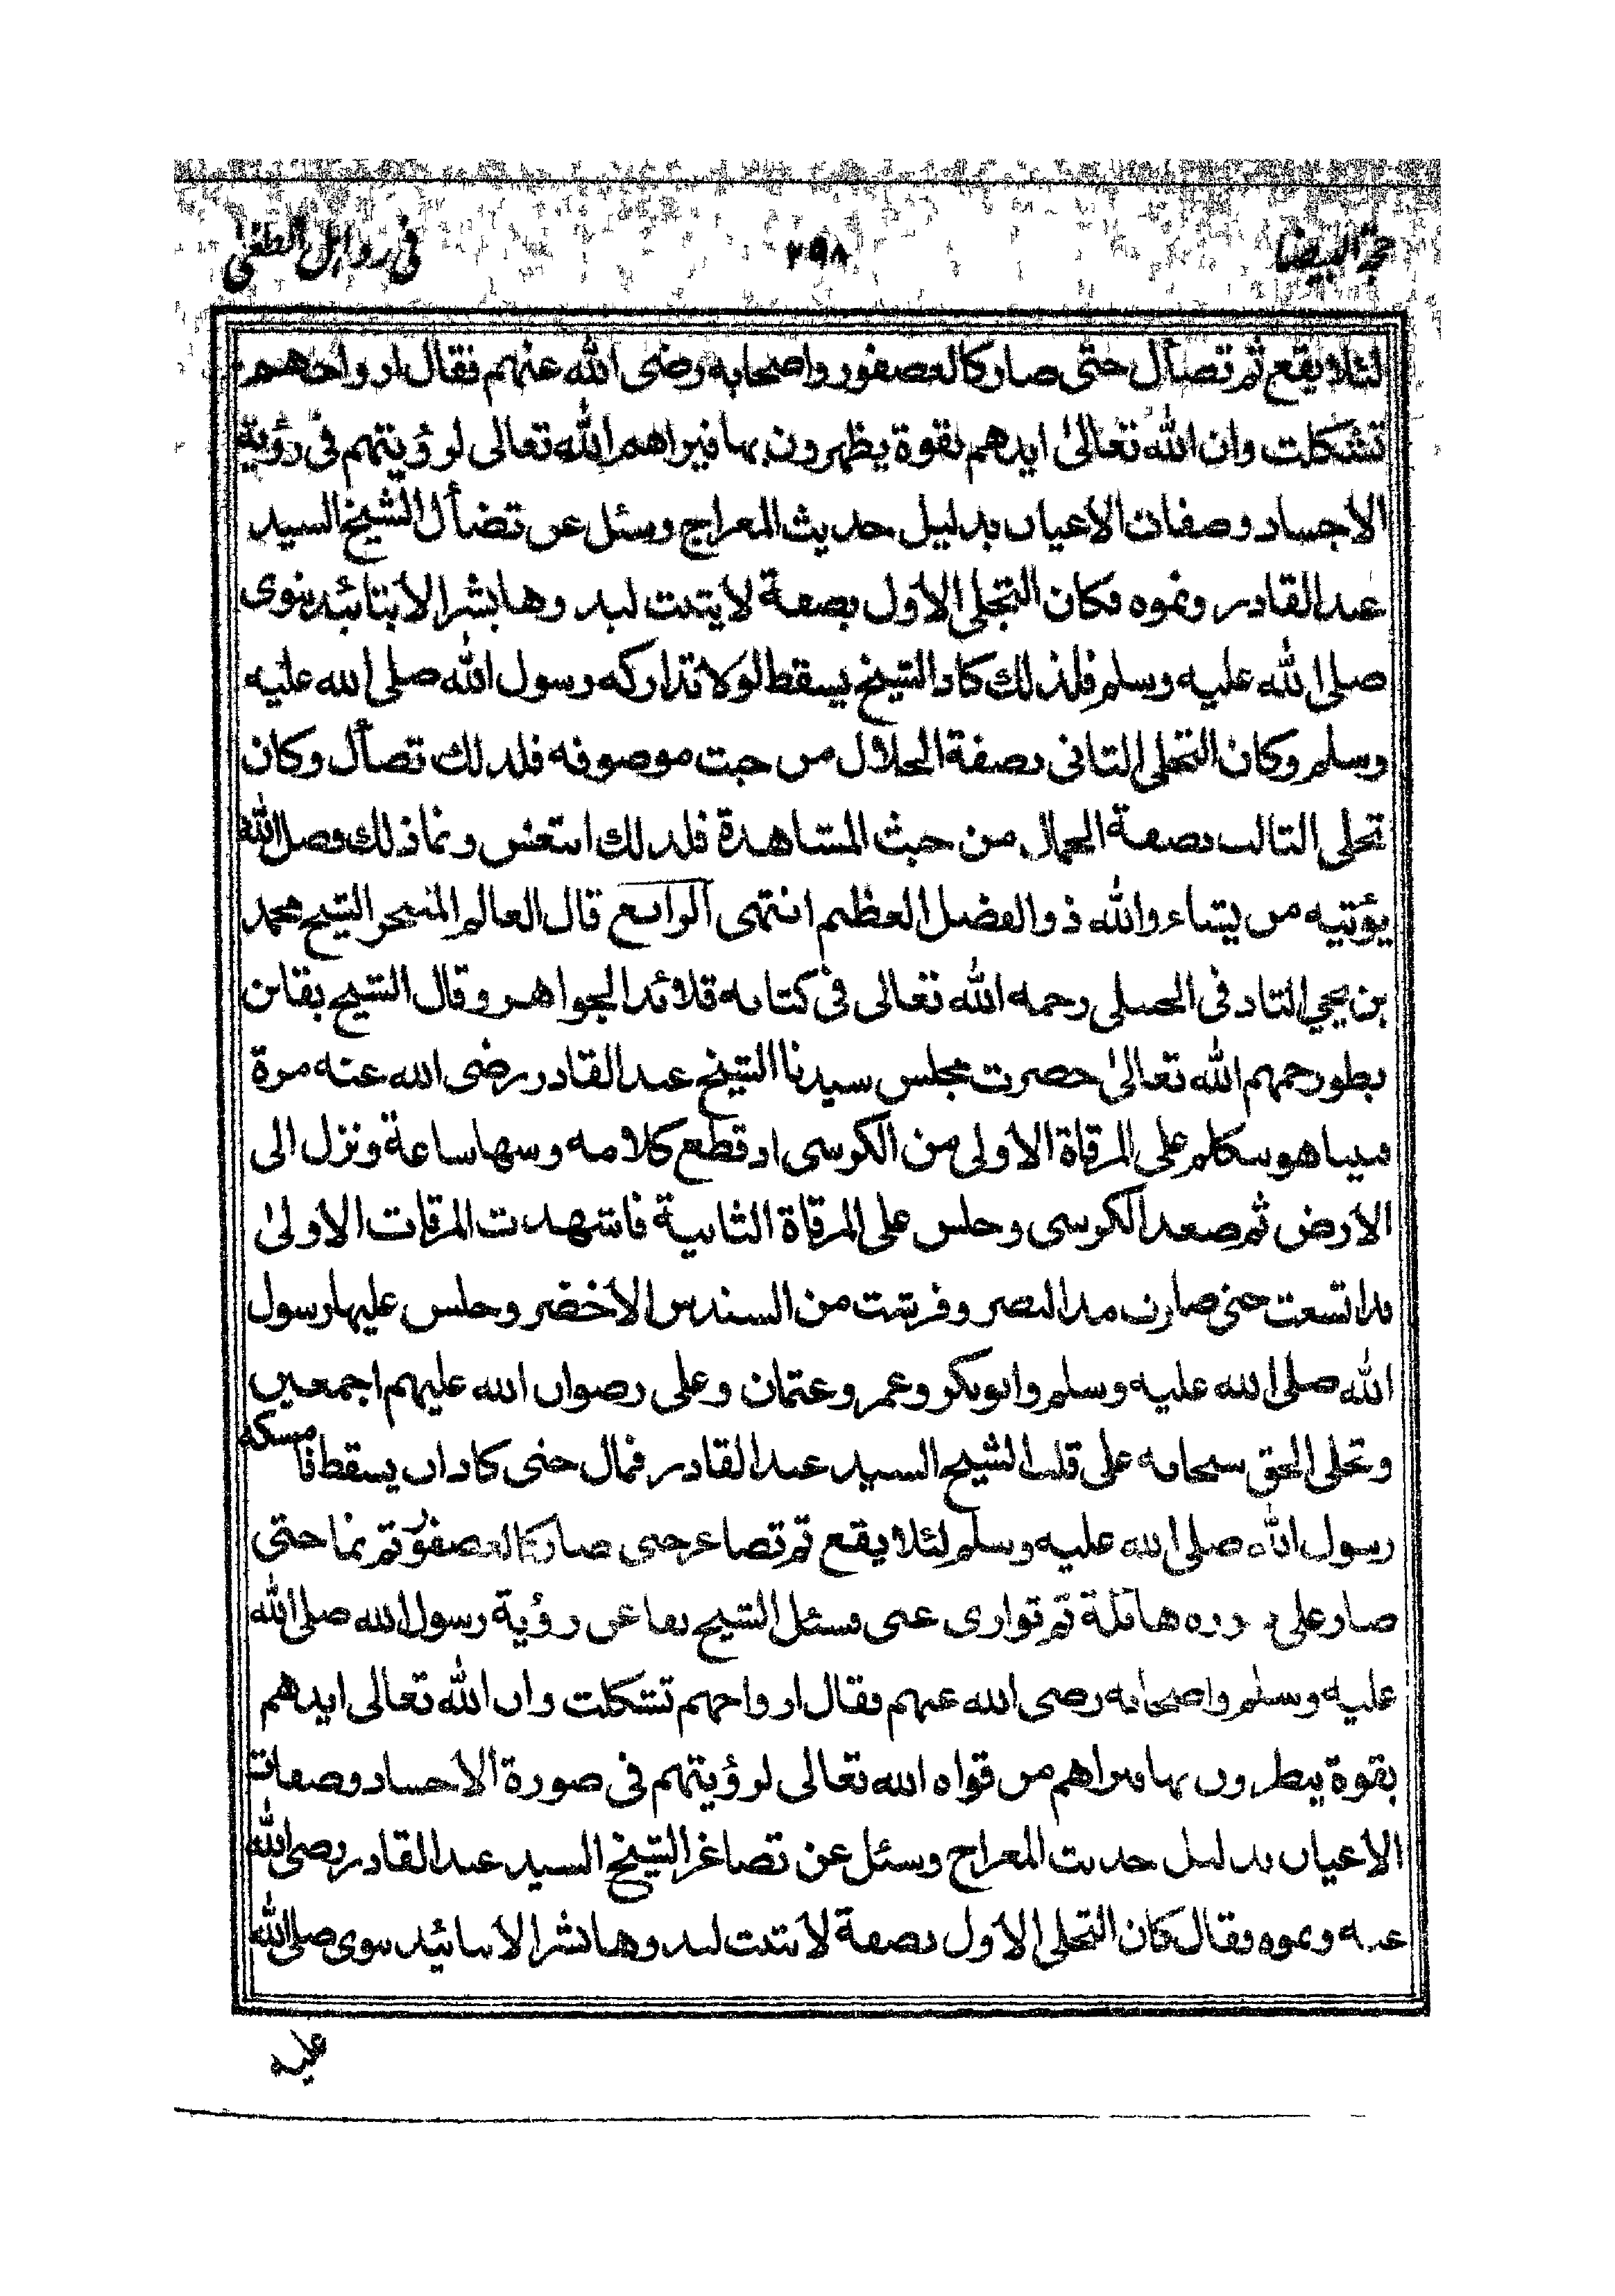 حجة البيضا ٢٩٨ في
لئلا يقع ثم تضأل حتى صار كالعصفور واصحابه رضى الله عنهم فقال ارواحهم
تشكلت وان الله تعالىٰ ايدهم بقوة يظهرون بها فيراهم الله تعالى لرؤيتهم فى رؤية
الاجساد وصفات الاعيان بدليل حديث المعراج وسئل عن تضأل الشيخ السيد
عبد القادر ونموه فكان التجلى الاول بصفة لا يثبت لبد وها بشر الا بتائيد نبوى
صلى الله عليه وسلم فلذلك كاد الشيخ يسقط لولا تداركه رسول الله صلى الله عليه
وسلم وكان التجلى الثانى بصفة الجلال من حيث موصوفه فلذلك تضأل وكان
تجلى الثالث بصفة الجمال من حيث المشاهدة فلذلك انتعش ونما ذلك فضل الله
يؤتيه من يشاء والله ذو الفضل العظيم انتهى الرابع قال العالم المتبحر الشيخ محمد
بن يحيي التادفى الحنبلى رحمه الله تعالى فى كتابه قلائد الجواهر وقال الشيخ بقابن
بطو رحمهم الله تعالىٰ حضرت مجلس سيدنا الشيخ عبد القادر رضى الله عنه مرة
فبينا هو يتكلم على المرقاة الاولى من الكرسى اذ قطع كلامه وسها ساعة ونزل الى
الارض ثم صعد الكرسى وجلس على المرقاة الثانية فاشهدت المرقات الاولىٰ
قد اتسعت حتى صارت مد البصر وفرشت من السندس الاخضر وجلس عليها رسول
الله صلى الله عليه وسلم وابوبكر وعمر وعثمان وعلى رضوان الله عليهم اجمعين
وتجلى الحق سبحانه على قلب الشيخ السيد عبد القادر فمال حتى كاد ان يسقط فامسكه
رسول الله صلى الله عليه وسلم لئلا يقع ثم تصاغر حتى صار كالعصفور ثم نما حتى
صار على هائلة ثم توارى عنى فسئل الشيخ بقا عن رؤية رسول الله صلى الله
عليه وسلم واصحابه رضى الله عنهم فقال ارواحهم تشكلت وان الله تعالى ايدهم
بقوة يظهرون بها فيراهم من قواه الله تعالى لرؤيتهم فى صورة الاجساد وصفات
الاعيان بدليل حديث المعراج وسئل عن تصاغر الشيخ السيد عبد القادر رضى الله
عنه ونموه فقال كان التجلى الاول بصفة لا يثبت لبد وها بشر الا بتائيد نبوى صلى الله
عليه